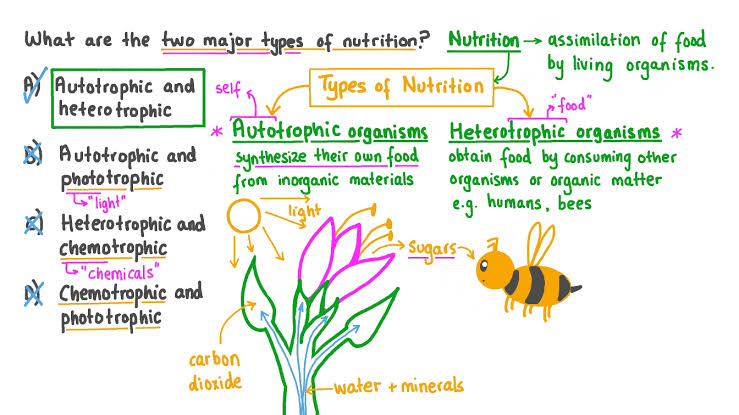 What are the two major types of nutrition?
Nutrition → assimilation of food
by living organisms.
A) Autotrophic and
heterotrophic
B) Autotrophic and
phototrophic
"light"
C) Heterotrophic and
chemotrophic
"chemicals"
D) Chemotrophic and
phototrophic
Types of Nutrition
self
* Autotrophic organisms
synthesize their own food
from inorganic materials
"food"
Heterotrophic organisms *
obtain food by consuming other
organisms or organic matter
e.g. humans, bees
light
sugars
carbon
dioxide
water + minerals